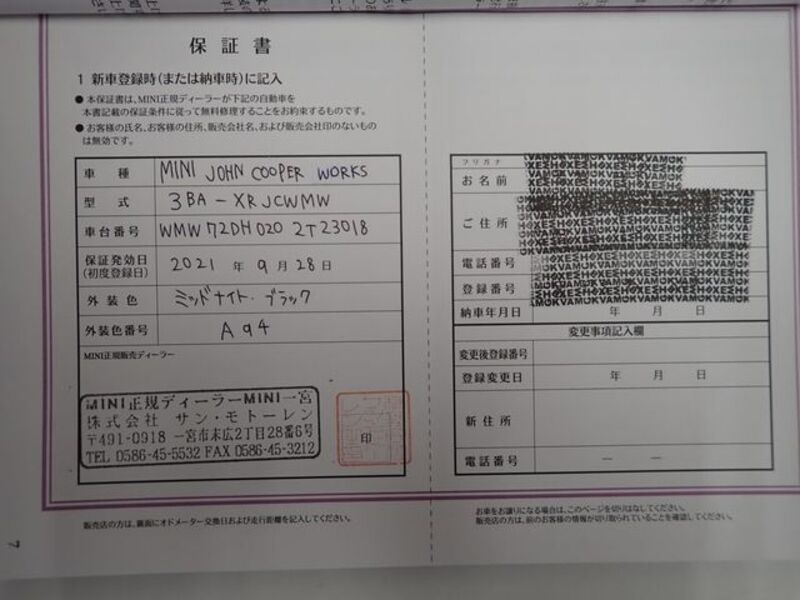 保証書
1 新車登録時(または納車時)に記入
● 本保証書は、MINI正規ディーラーが下記の自動車を
本書記載の保証条件に従って無料修理することをお約束するものです。
● お客様の氏名、お客様の住所、販売会社名、および販売会社印のないもの
は無効です。
車種 MINI JOHN COOPER WORKS
型式 3BA-XRJCWMW
車台番号 WMW72DH020 2T23018
保証発効日
(初度登録日) 2021年9月28日
外装色 ミッドナイト・ブラック
外装色番号 A94
MINI正規販売ディーラー
MINI正規ディーラーMINI一宮
株式会社 サン・モトーレン
〒491-0918 一宮市末広2丁目28番6号
TEL 0586-45-5532 FAX 0586-45-3212
印
販売店の方は、裏面にオドメーター交換日および走行距離を記入してください。
7
フリガナ
お名前
ご住所
電話番号
登録番号
納車年月日 年 月 日
変更事項記入欄
変更後登録番号
登録変更日 年 月 日
新住所
電話番号 — —
お車をお譲りになる場合は、このページを切りはなしてください。
販売店の方は、前のお客様の情報が切り取られていることを確認してください。